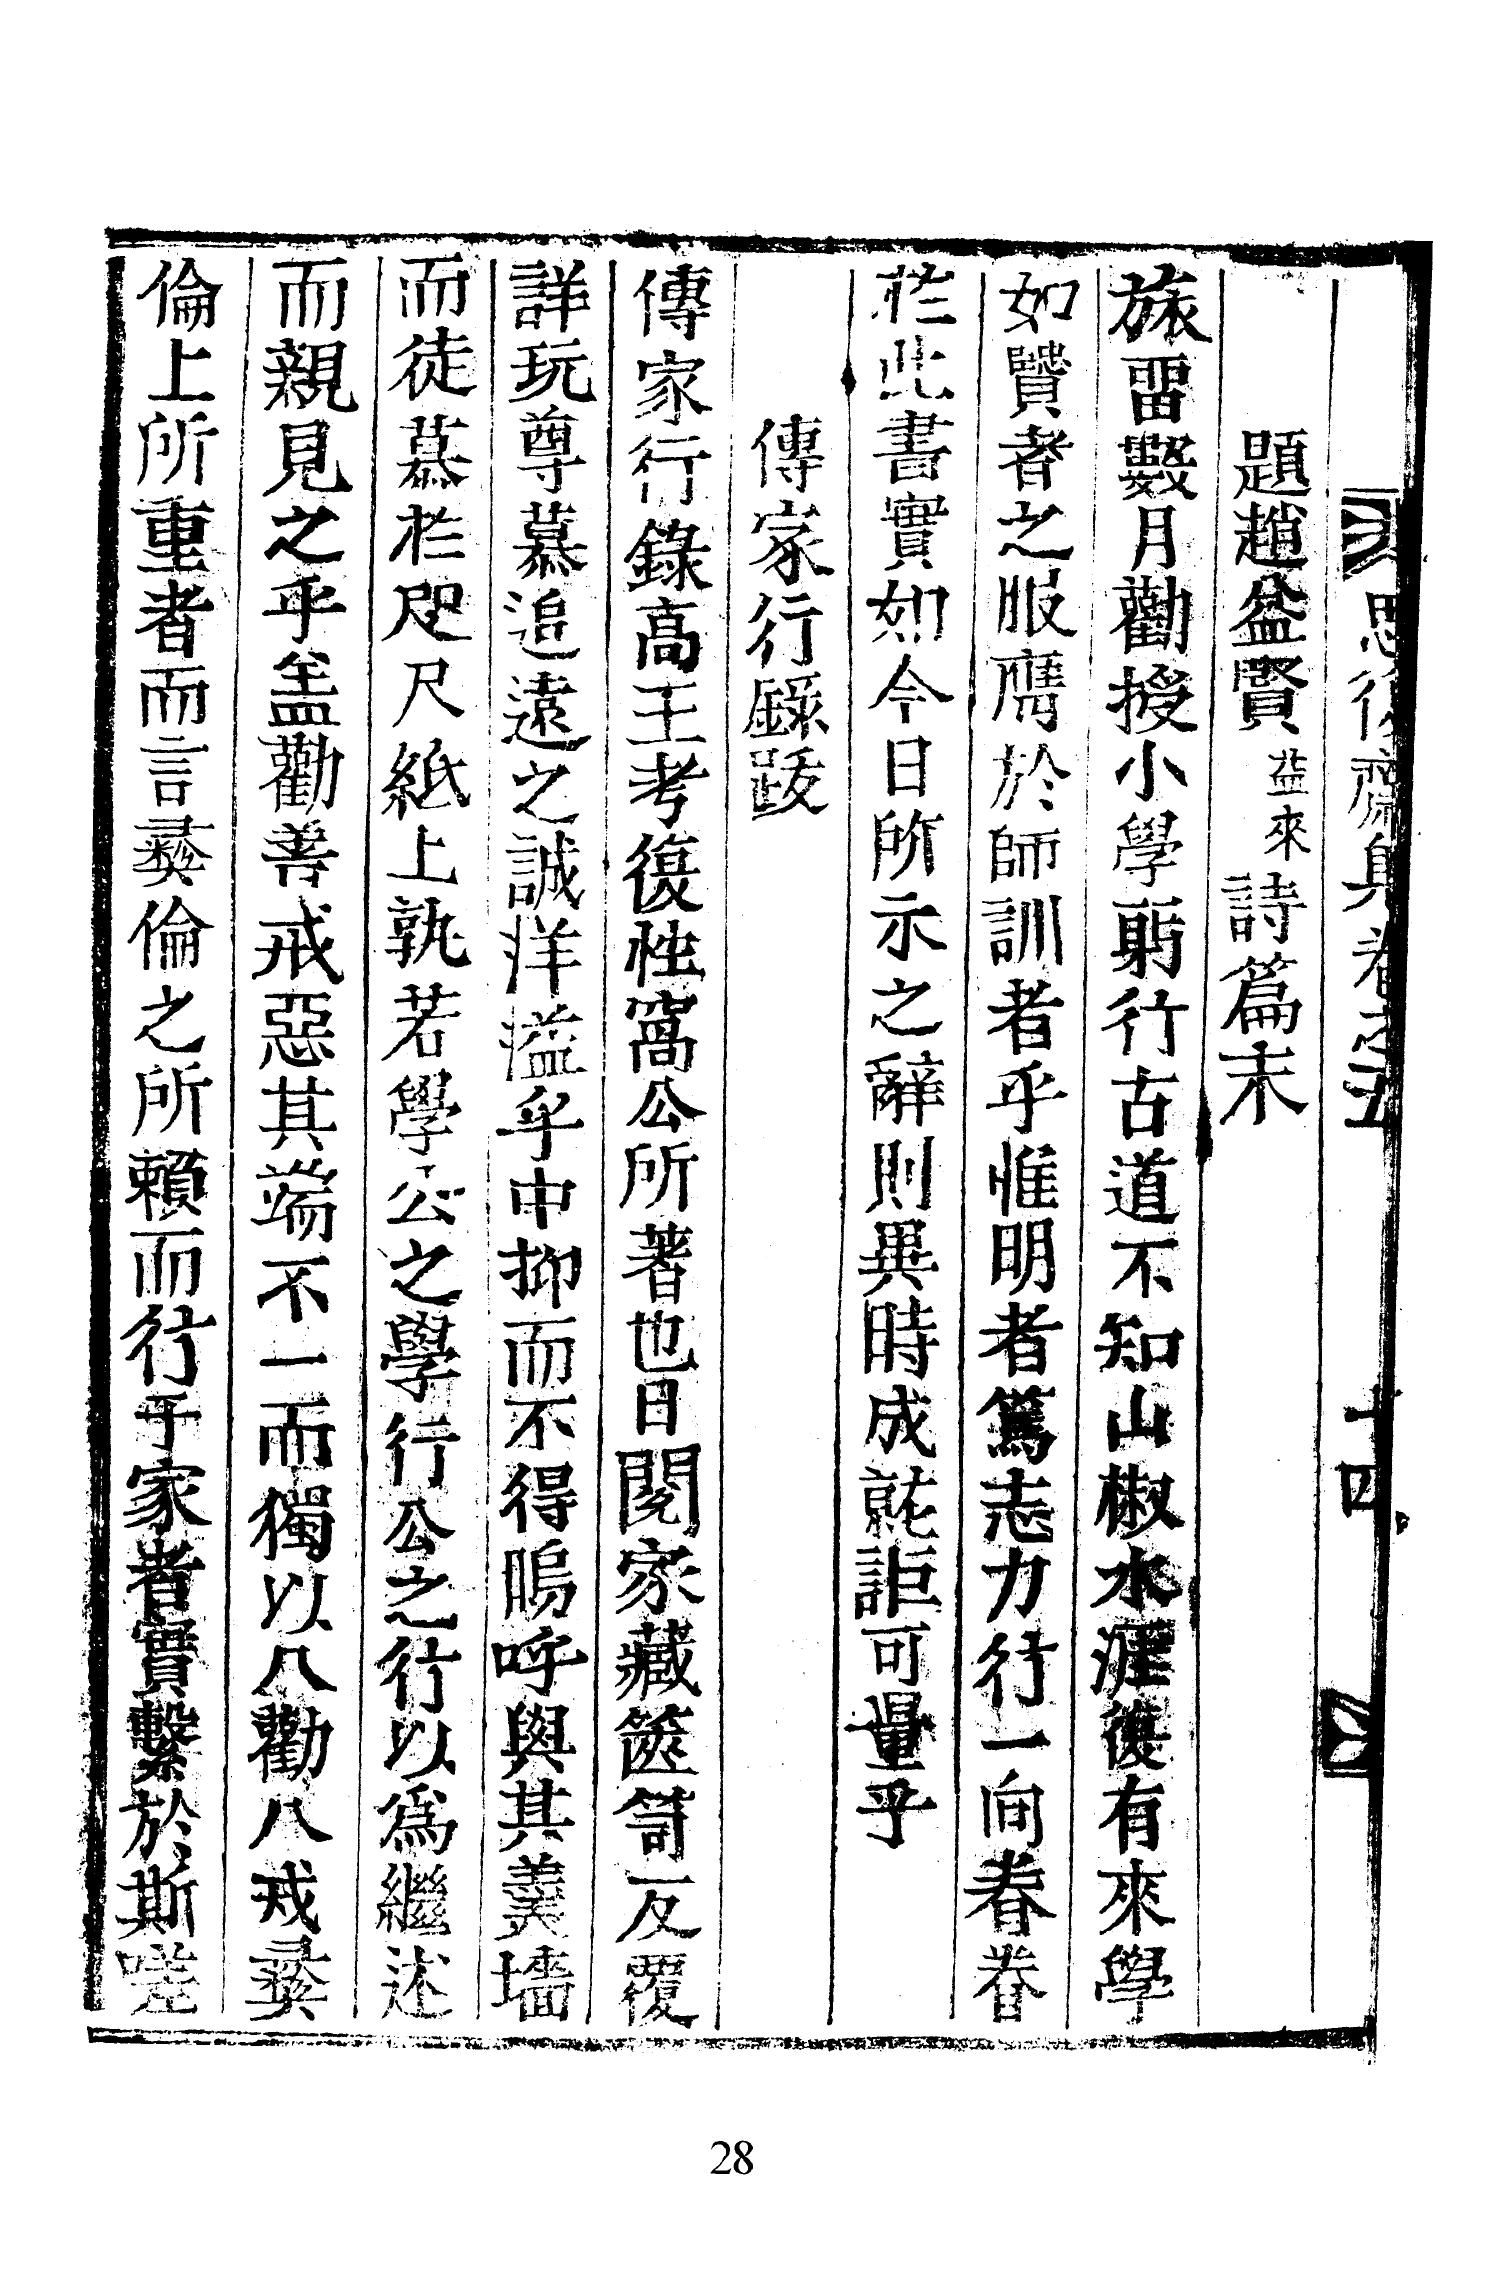 思復齋集卷之五　十四
題趙益賢益來詩篇末
旅畱數月勸授小學躬行古道不知山椒水涯復有來學
如贒者之服膺於師訓者乎惟明者篤志力行一向眷眷
於此書實如今日所示之辭則異時成就詎可量乎
傳家行錄跋
傳家行錄高王考復性窩公所著也日閱家藏篋笥反覆
詳玩尊慕追遠之誠洋溢乎中抑而不得嗚呼與其羹墻
而徒慕於咫尺紙上孰若學公之學行公之行以爲繼述
而親見之乎盖勸善戒惡其端不一而獨以八勸八戒彛
倫上所重者而言彛倫之所賴而行于家者實繫於斯嗟
28